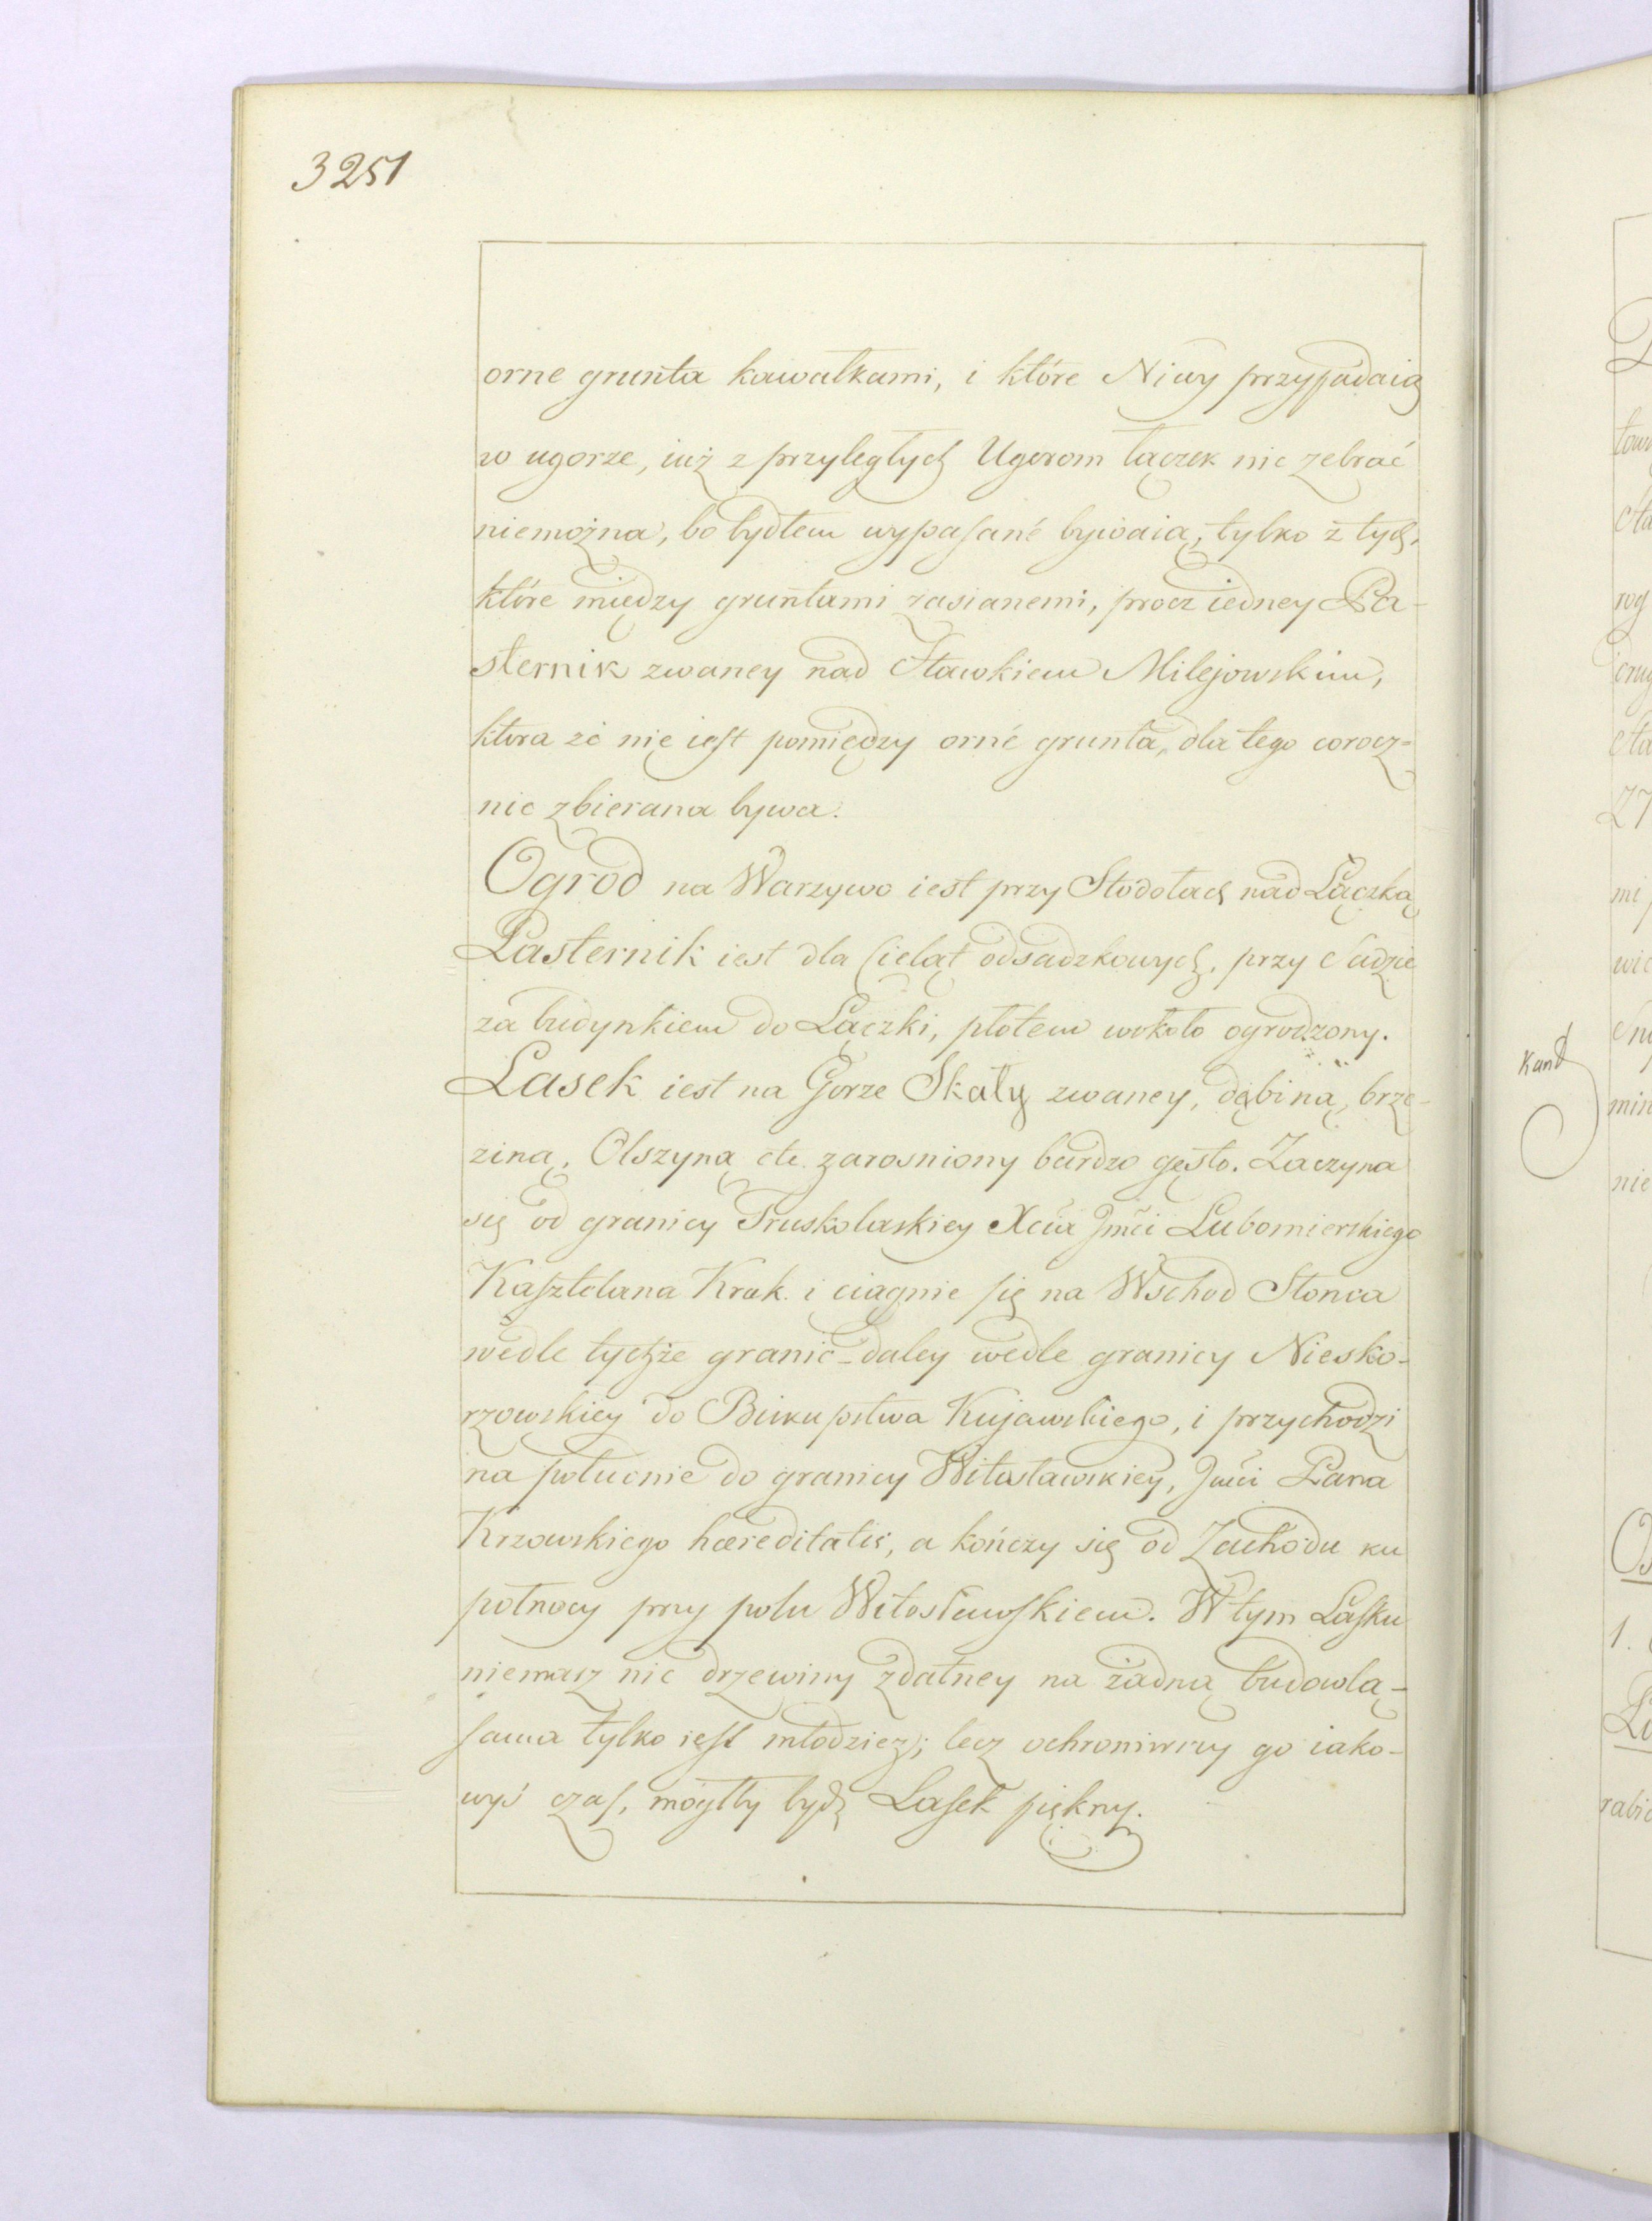 3251
orne grunta kawałkami, i które Niwy przypadaią
w ugorze, iuż z przyległych Ugorom łączek nic zebrać
niemożna, bo bydłem wypasané bywaią, tylko z tych,
które między gruntami zasianemi, procz iedney Pa-
sternik zwaney nad Stawkiem Milejowskim,
ktora że nie iest pomiędzy orné grunta, dla tego corocz=
nie zbierana bywa.
Ogrod na Warzywo iest przy Stodołach nad Łączką
Pasternik iest dla Cieląt odsadzkowych, przy Sadzie
za budynkiem do Łączki, płotem wokoło ogrodzony.
Lasek iest na Gorze Skały zwaney, dębiną, brze-
ziną, Olszyną etc. zarosniony bardzo gęsto. Zaczyna
się od granicy Truskolaskiey Xcia Jmći Lubomierskiego
Kasztelana Krak. i ciągnie się na Wschod Słonca
wedle tychże granic - daley wedle granicy Niesko-
rzowskiey do Biskupstwa Kujawskiego, i przychodzi
na południe do granicy Witosławskiey, Jmći Pana
Krzowskiego hæreditatis, a kończy się od Zachodu ku
połnocy przy polu Witosławskiem. W tym Lasku
niemasz nic drzewiny zdatney na żadną budowlą -
sama tylko iest młodzież; lecz ochroniwszy go iako-
wyś czas, mógłby bydź Lasek piękny.
Kand